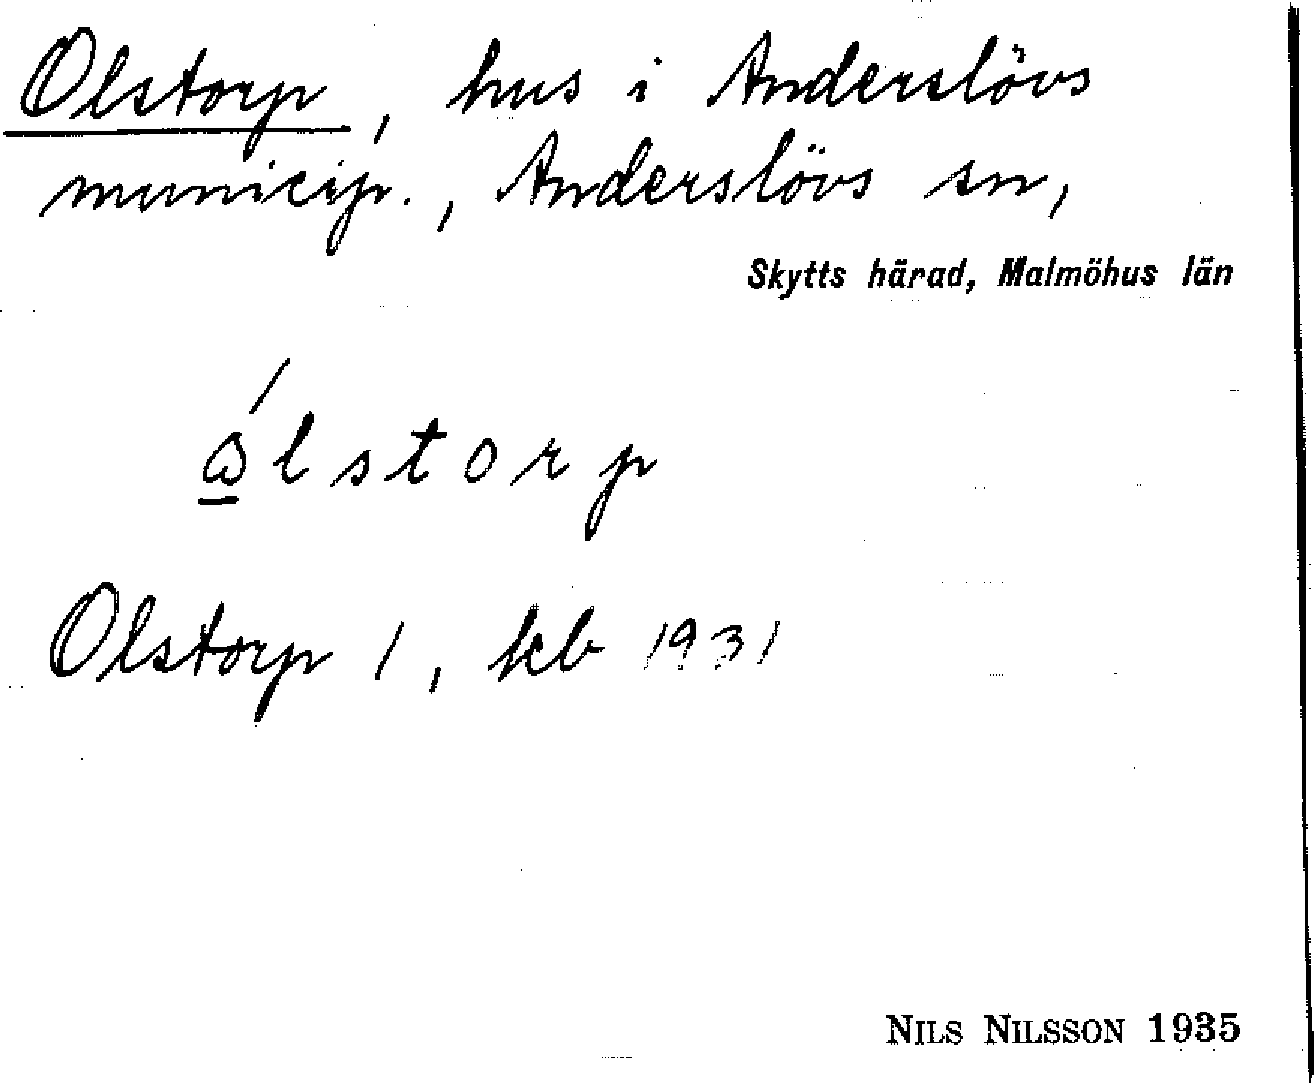 Olstorp, hus i Anderslövs
municip., Anderslövs sn,
Skytts härad, Malmöhus län
ɷ̱́lstorp
Olstorp 1, kb 1931
NILS NILSSON 1935